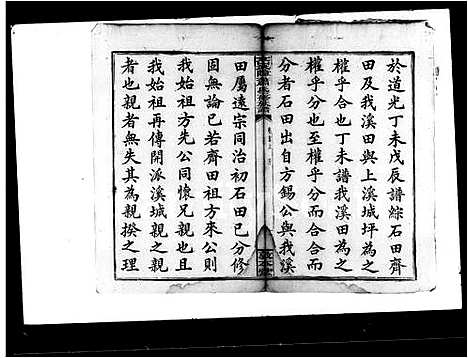 於道光丁未戊辰譜綜石田齊
田及我溪田與上溪城坪為之
權乎合也丁未譜我溪田為之
權乎分也至權乎合而
分者石田出自方錫公與我溪
田屬遠宗同治初石田已分修
固無論已若齊田祖方來公則
我始祖方先公同懷兄親也且
我始祖再傳開派溪城親之親
者也親者無失其為親揆之理